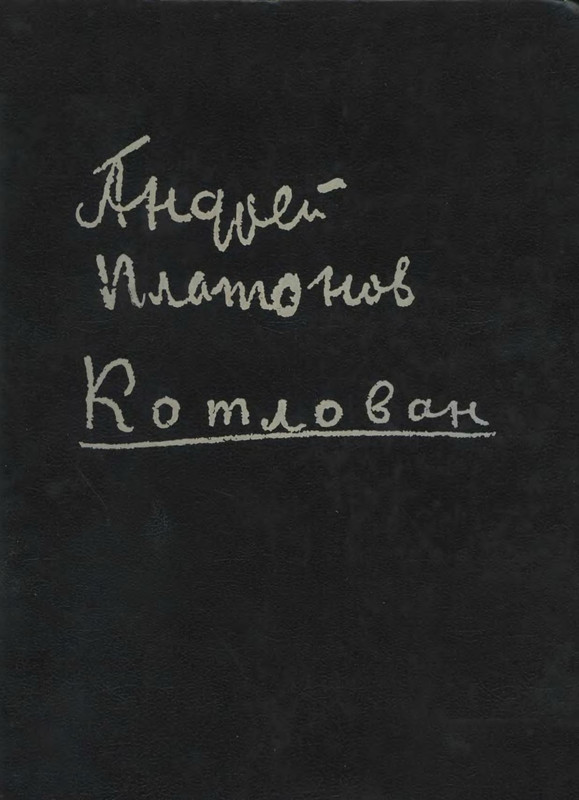 Андрей
Платонов
Котлован